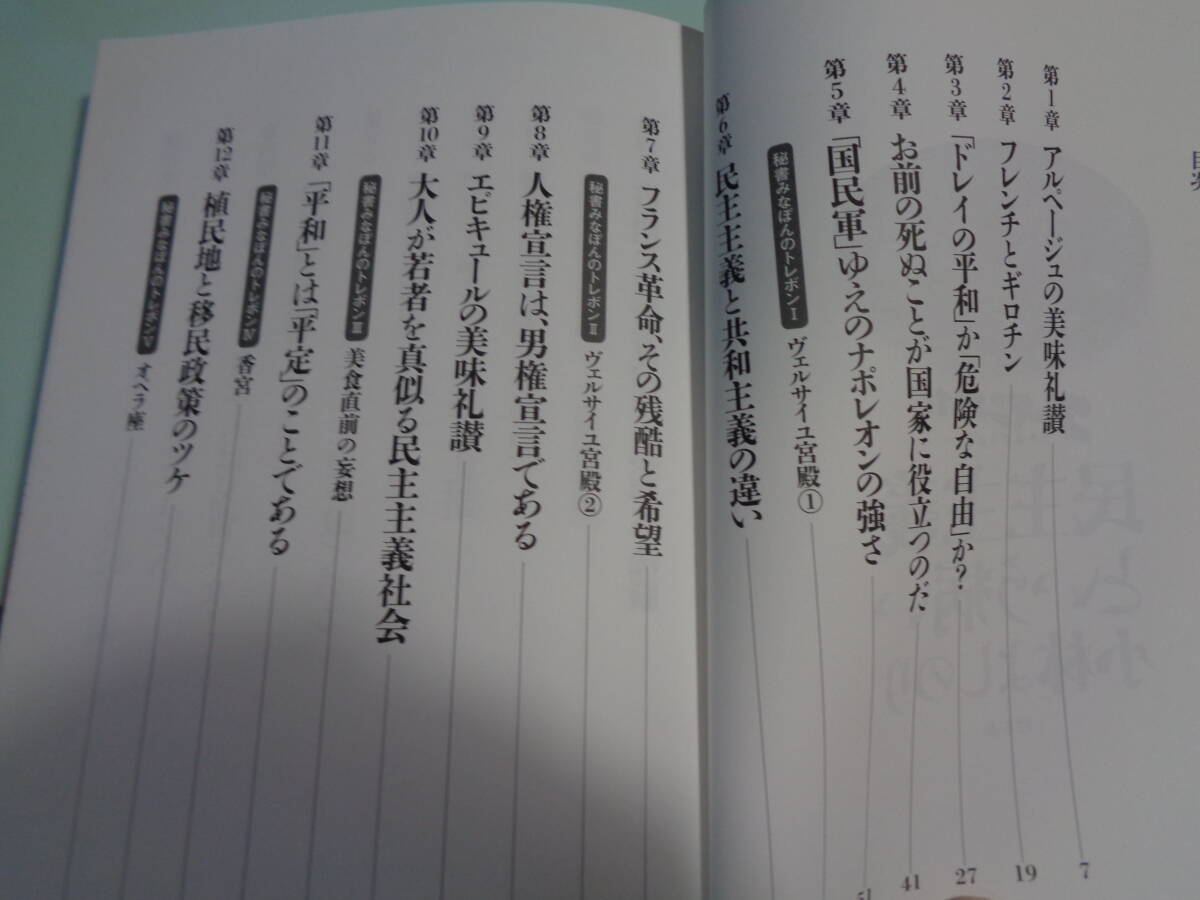 目次
第1章 アルページュの美味礼讃 7
第2章 フレンチとギロチン 19
第3章 「ドレイの平和」か「危険な自由」か? 27
第4章 お前の死ぬことが国家に役立つのだ 41
第5章 「国民軍」ゆえのナポレオンの強さ 51
秘書みなぼんのトレボンⅠ ヴェルサイユ宮殿①
第6章 民主主義と共和主義の違い
第7章 フランス革命、その残酷と希望
秘書みなぼんのトレボンⅡ ヴェルサイユ宮殿②
第8章 人権宣言は、男権宣言である
第9章 エピキュールの美味礼讃
第10章 大人が若者を真似る民主主義社会
秘書みなぼんのトレボンⅢ 美食直前の妄想
第11章 「平和」とは「平定」のことである
秘書みなぼんのトレボンⅣ 香宮
第12章 植民地と移民政策のツケ
秘書みなぼんのトレボンⅤ オペラ座